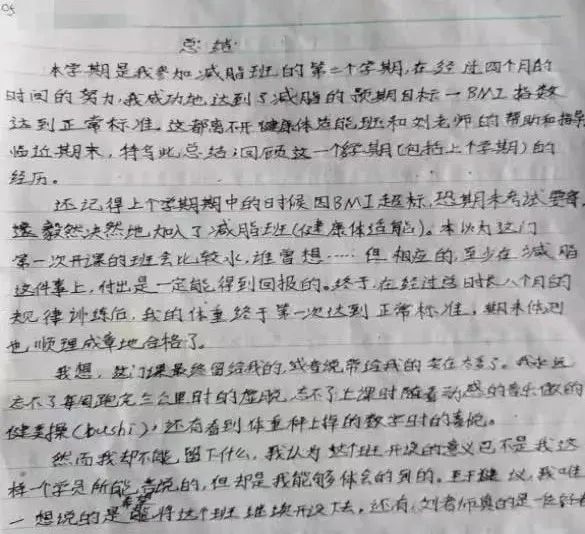 总结
本学期是我参加减脂班的第二个学期,在经过四个月的
时间的努力,我成功地达到了减脂的预期目标—BMI指数
达到正常标准。这都离不开健康体适能班和刘老师的帮助和指导
临近期末,特写此总结,回顾这一个学期(包括上个学期)的
经历。
还记得上个学期期中的时候因BMI超标,恐期末考试要
毅然决然地加入了减脂班(健康体适能)。本以为这门
第一次开课的班会比较水,谁曾想……但相应的,至少在减脂
这件事上,付出是一定能得到回报的。终于,在经过总时长八个月的
规律训练后,我的体重终于第一次达到正常标准,期末体测
也顺理成章地合格了。
我想,这门课最终留给我的,或者说带给我的实在太多了。我永远
忘不了每周跑完三公里时的虚脱,忘不了上课时随着动感的音乐做的
健美操(bushi),还有看到体重秤上掉的数字时的喜悦。
然而我却不能留下什么,我认为这个班开设的意义已不是我这
样一个学员所能言说的,但却是我能够体会的到的。至于建议,我唯
一想说的是希望能将这个班继续开设下去。还有,刘老师真的是一位好